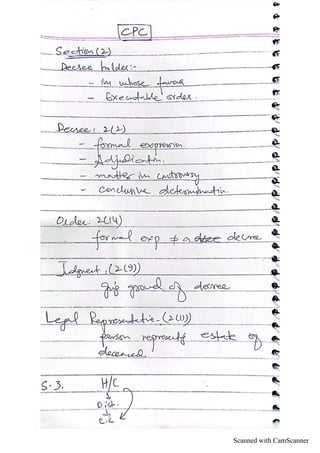 CPC
Section (2)
Decree holder:-
- In whose favour
- Executable order.
Decree: 2(2)
- formal expression.
- Adjudication.
- matter in controversy
- conclusive determination.
Order: 2(14)
formal exp ≠ a decree
Judgment: (2(9))
ground of decree
Legal Representative - (2(11))
person representg estate of
deceased.
S. 3. H/C
↓
Dis.
↓
C.C
Scanned with CamScanner